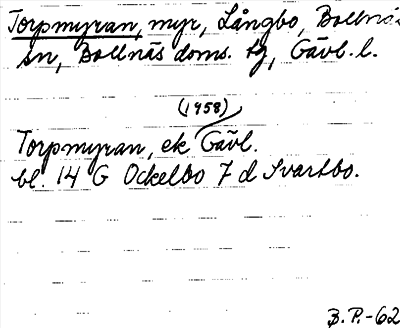 Torpmyran, myr, Långbo, Bollnäs
sn, Bollnäs doms. tg, Gävl. l.
(1958)
Torpmyran, ek Gävl.
bl. 14 G Ockelbo 7 d Svartbo.
B. P. -62